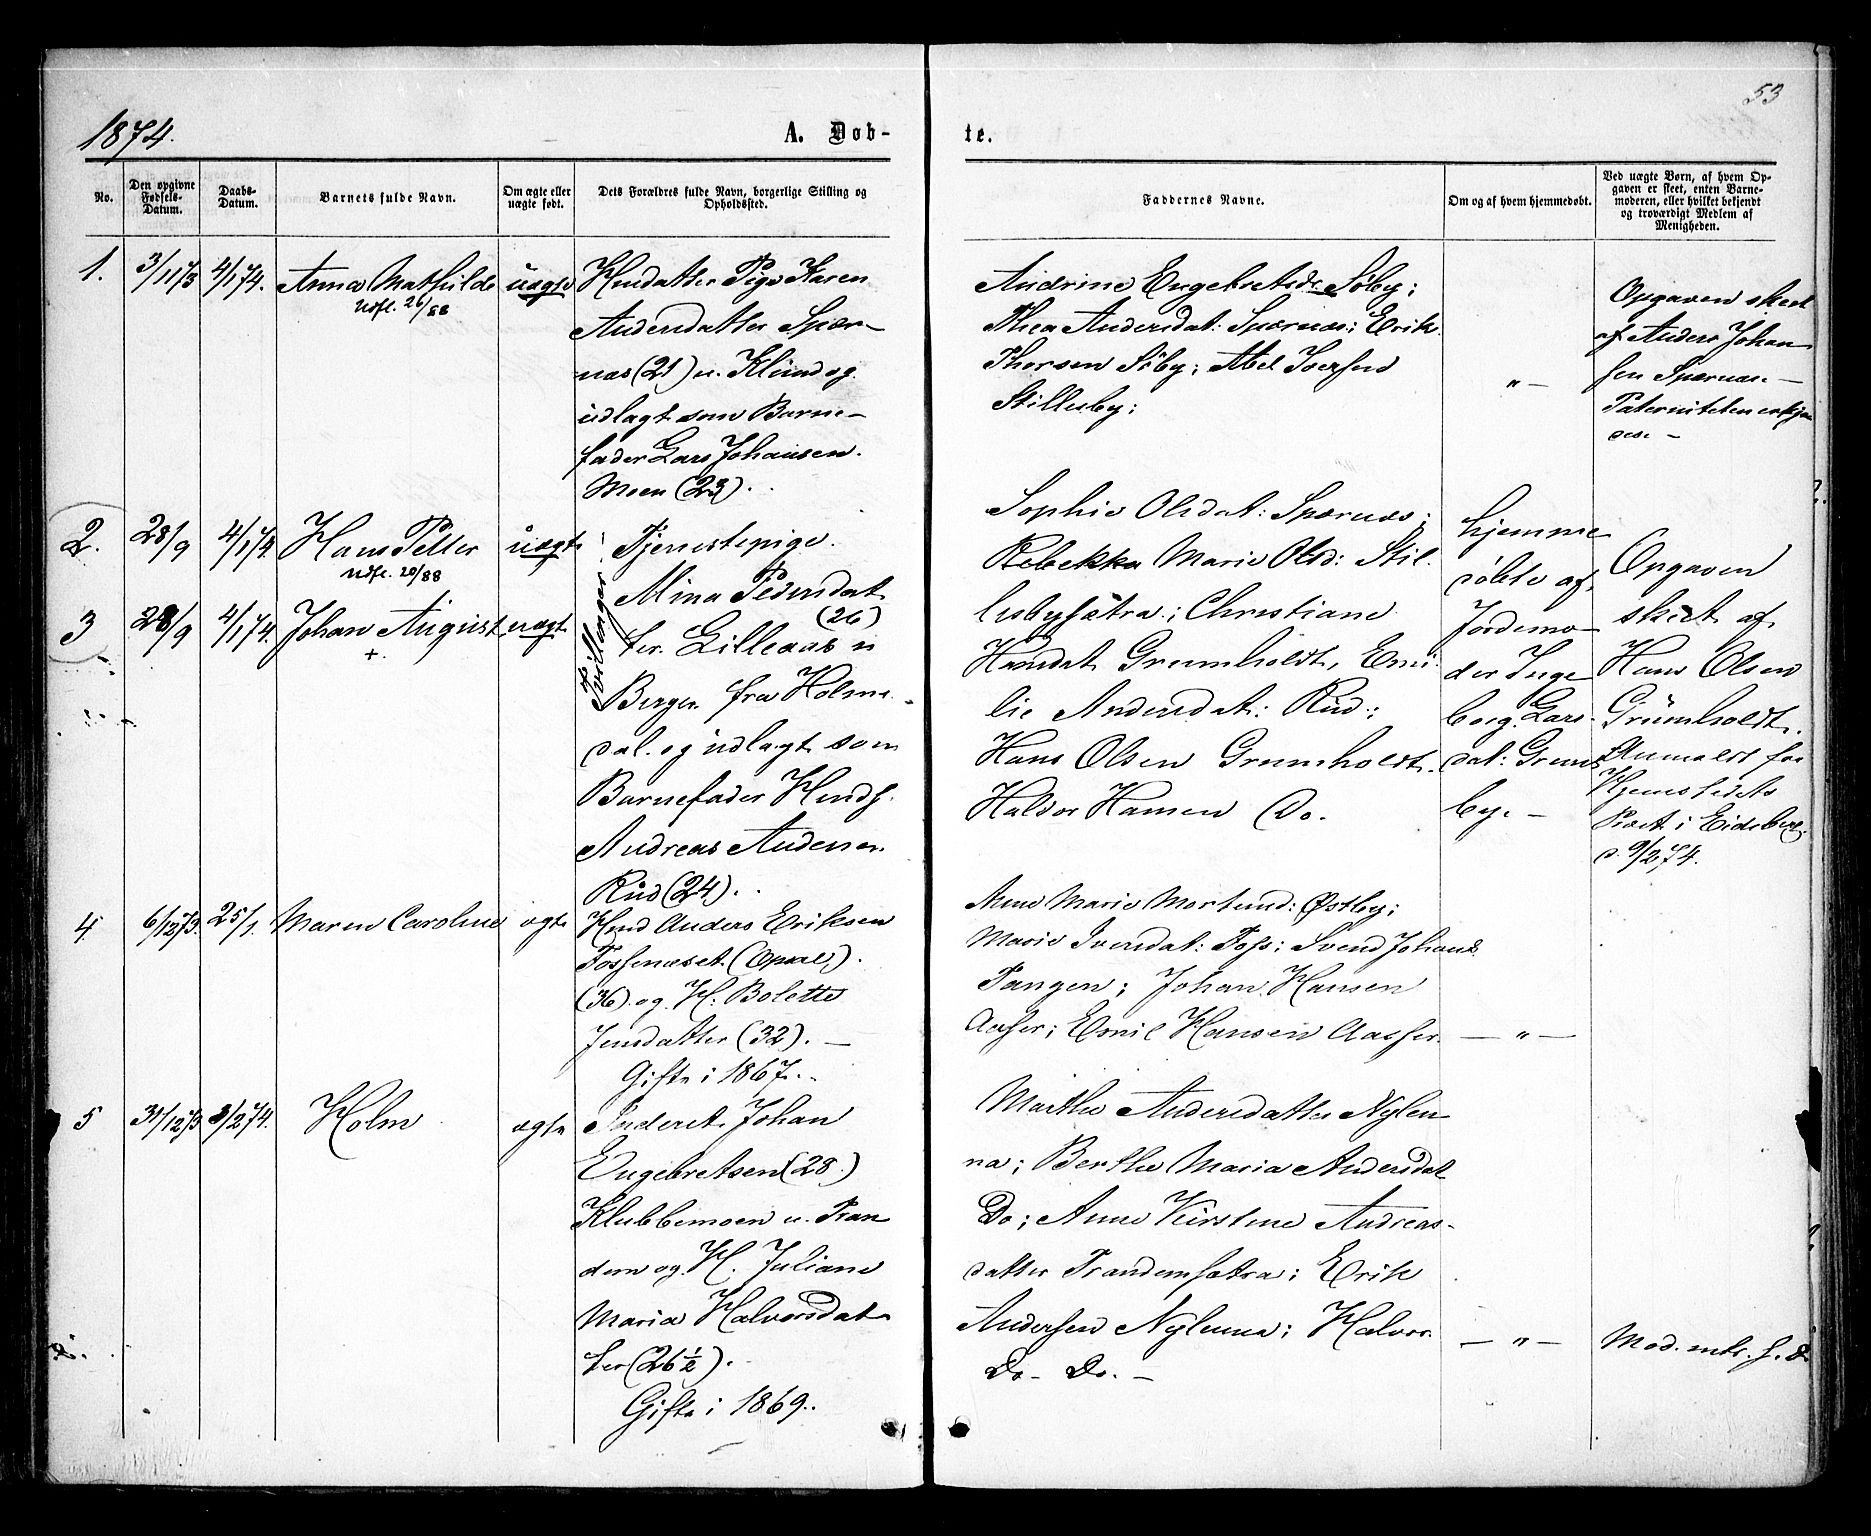 53
1874.
A. Døb-
te.
No.
Den opgivne Fødsels-Datum.
Daabs-Datum.
Barnets fulde Navn.
Om ægte eller uægte født.
Dets Forældres fulde Navn, borgerlige Stilling og Opholdssted.
Faddernes Navne.
Om og af hvem hjemmedøbt.
Ved uægte Børn, af hvem Op-
gaven er skeet, enten Barne-
moderen, eller hvilket bekjendt
og troværdigt Medlem af
Menigheden.
1. 3/1173 4/174. Anna Mathilde uægte
Udfl. 26/88
Andersdatter Spær-
næs (21) u. Klund og
udlagt som Barne-
fader Lars Johansen
Moen (23).
Andrine Engebretsdr. Søby;
Thea Andersdat: Spærnæs; Erik
Thorsen Söby; Abel Iversen
Stillesby;
„ —
Opgaven skeet
af Anders Johan
sen Spærnæs. —
Paterniteten erkjen
des. —
2. 28/9 4/174. Hans Petter uægte
Udfl. 20/88
3 28/9 4/174. Johan August uægte
+.
Tvillinger
Tjenestepige
Mina Pedersdat
(26)
ter. Lilleaas u
Berger fra Holme
dal. og udlagt som
Barnefader Hmds.
Andreas Andersen
Rud (24).
Sophie Olsdat: Spærnæs;
Rebekka Marie Olsd: Stil
lesbysætra; Christiane
Hansdat Grumholdt, Emi
lie Andersdat: Rud;
Hans Olsen Grumholdt.
Haldor Hansen Do.
hjemme
døbte af
Jordemo-
der Inge
borg Lars
dat: Grums
by. —
Opgaven
skeet af
Hans Olsen
Grumholdt.
Anmeldt for
Hjemstedets
Præst i Eidsberg
d. 9/2 74.
4. 6/1273. 25/1. Maren Caroline ægte
Hmd Anders Eriksen
Fossenæset. (Opsal).
(36). og H. Bolette
Jensdatter (32). —
Gifte i 1867.
Anne Marie Mortensd: Østby;
Marie Iversdat: Foss; Svend Johans
Tangen; Johan Hansen
Aaser; Emil Hansen Aasser.
— „ —
5 31/1273 8/274. Holm ægte
Inderst. Johan
Engebretsen (28.)
Klubbemoen u. Tran
dem og H. Juliane
Maria Halvorsdat
ter (26½).
Gifte i 1869.
Marthe Andersdatter Nylen
na; Berthe Maria Andersdat
Do; Anne Kirstine Andreas-
datter Trandemsætra; Erik
Andersen Nylenna; Halvor
Do — Do. —
— „ —
Mod. intr. s. D